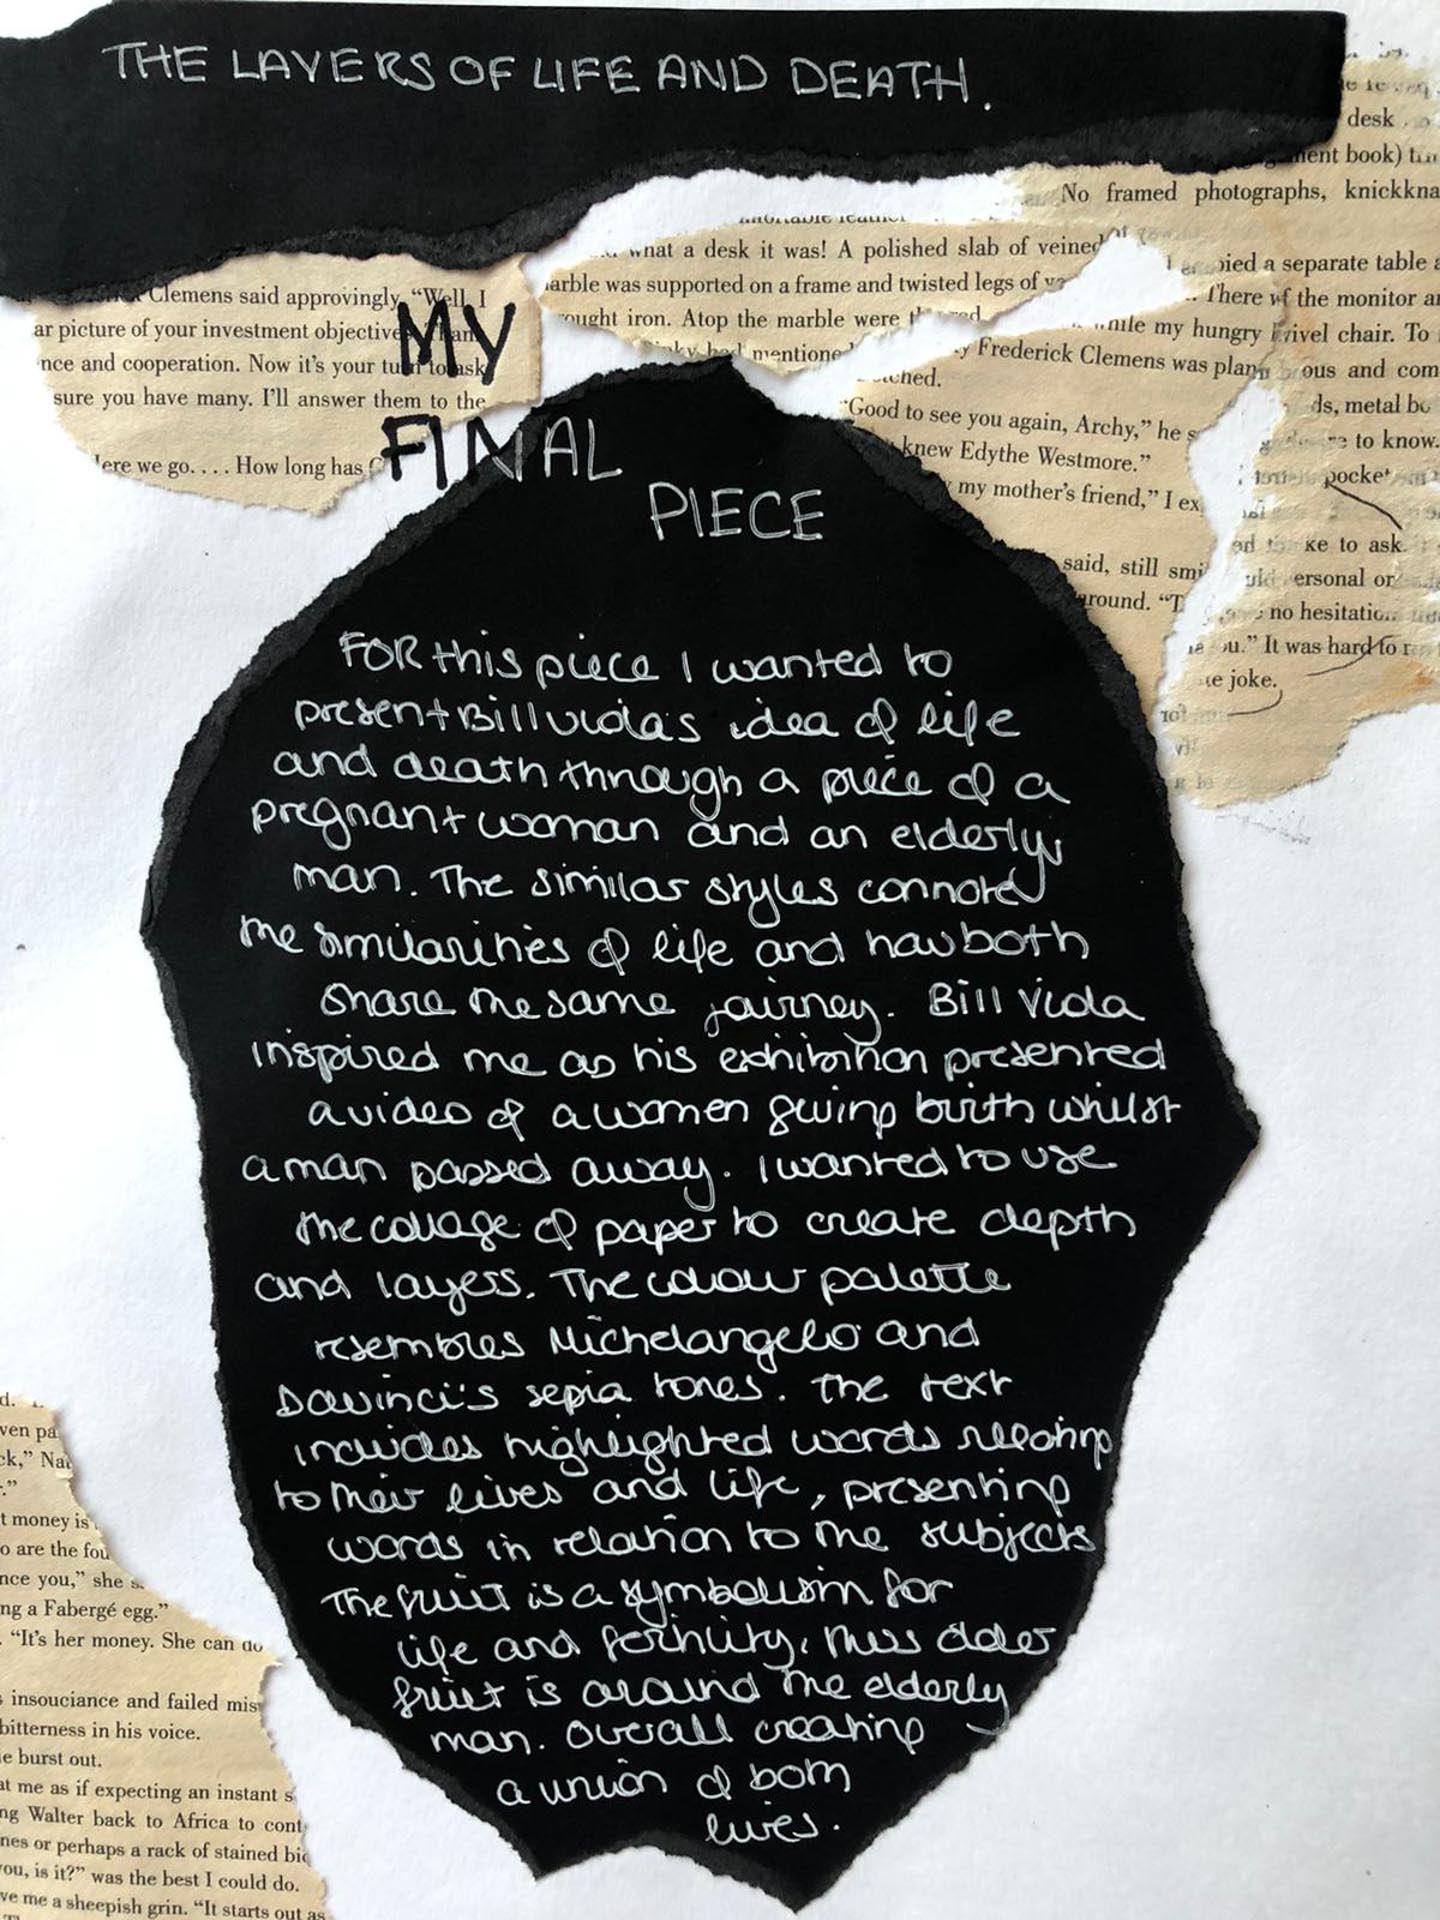 THE LAYERS OF LIFE AND DEATH.
desk
ment book)
No framed photographs, knickkna
what a desk it was! A polished slab of veined
arble was supported on a frame and twisted legs of
ought iron. Atop the marble were
mentione
ied a separate table a
There of the monitor a
while my hungry ivel chair. To
Frederick Clemens was plan ous and com
ched. ds, metal bo
"Good to see you again, Archy," he s to know.
knew Edythe Westmore." pocke
my mother's friend," I ex
ke to ask
said, still smi ersonal or
around. "T no hesitation
ou." It was hard to
te joke.
Clemens said approvingly. "Well, I
ar picture of your investment objective
nce and cooperation. Now it's your turn to ask
sure you have many. I'll answer them to the
Here we go. . . . How long has C
MY
FINAL
PIECE
FOR this piece I wanted to
present Bill viola's idea of life
and death through a piece of a
pregnant woman and an elderly
man. The similar styles connote
the similarities of life and how both
share the same journey. Bill Viola
inspired me as his exhibition presented
a video of a women giving birth whilst
a man passed away. I wanted to use
the collage of paper to create depth
and layers. The colour palette
resembles Michelangelo and
Davinci's sepia tones. The text
includes highlighted words relating
to their lives and life, presenting
words in relation to the subjects
The fruit is a symbolism for
life and fertility, thus older
fruit is around the elderly
man. Overall creating
a union of both
lives.
d.
ven pa
ck," Nat
."
t money is
o are the fou
nce you," she s
ng a Fabergé egg."
. "It's her money. She can do
s insouciance and failed mis
bitterness in his voice.
e burst out.
at me as if expecting an instant s
ng Walter back to Africa to cont
nes or perhaps a rack of stained bic
ou, is it?" was the best I could do.
ve me a sheepish grin. "It starts out as